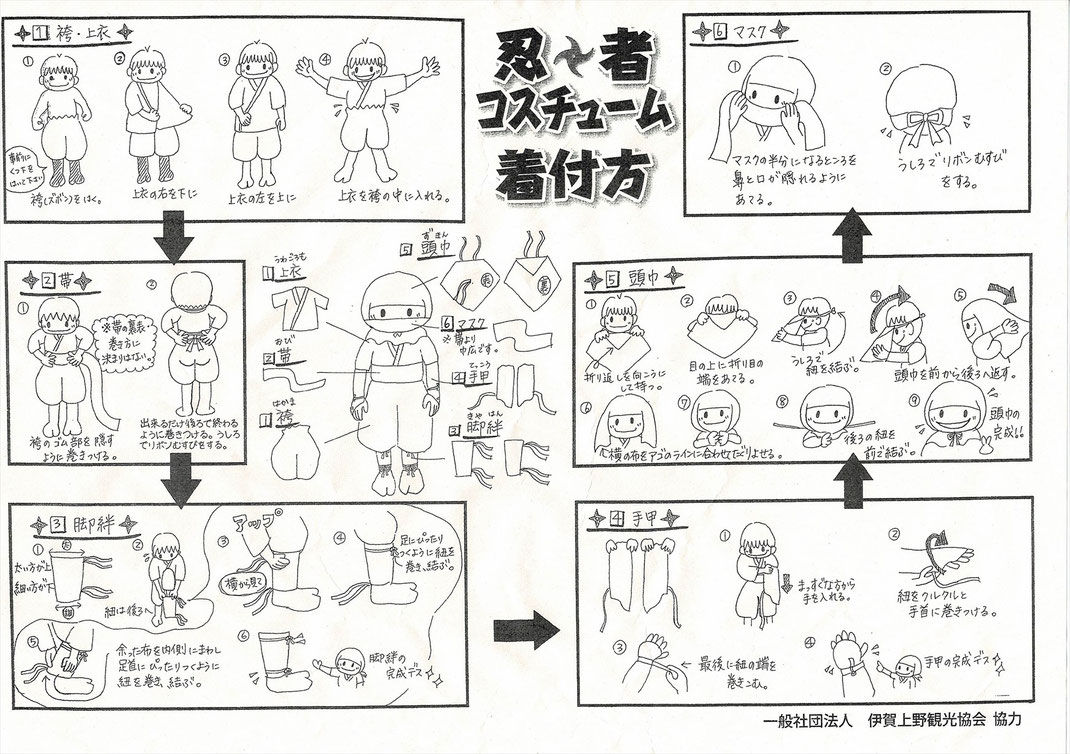 忍者
コスチューム
着付方
1 袴・上衣
①
事前に
くつ下を
はいて下さい
袴(ズボン)をはく。
②
上衣の右を下に
③
上衣の左を上に
④
上衣を袴の中に入れる。
2 帯
①
※帯の裏表
巻き方に
決まりはない。
袴のゴム部を隠す
ように巻きつける。
②
出来るだけ後ろで終わる
ように巻きつける。うしろ
でリボンむすびをする。
3 脚絆
①
太
太い方が上
細い方が下
細
②
紐は後ろへ
アップ
③
横から見て
④
足にぴったり
つくように紐を
巻き、結ぶ。
⑤
余った布を内側にまわし
足首にぴったりつくように
紐を巻き、結ぶ。
⑥
脚絆の
完成デス
4 手甲
①
まっすぐな方から
手を入れる。
②
紐をクルクルと
手首に巻きつける。
③
最後に紐の端を
巻きこむ。
④
手甲の完成デス
5 頭巾
①
折り返しを向こうに
して持つ。
②
目の上に折り目の
端をあてる。
③
うしろで
紐を結ぶ。
④
⑤
頭巾を前から後ろへ返す。
⑥
⑦
横の布をアゴのラインに合わせてたぐりよせる。
⑧
後ろの紐を
前で結ぶ。
⑨
頭巾の
完成!!
6 マスク
①
マスクの半分になるところを
鼻と口が隠れるように
あてる。
②
うしろでリボンむすび
をする。
うわころも
1 上衣
おび
2 帯
はかま
1 袴
ずきん
5 頭巾
表
裏
6 マスク
※帯より
巾広です。
てっこう
4 手甲
きゃはん
3 脚絆
一般社団法人 伊賀上野観光協会 協力